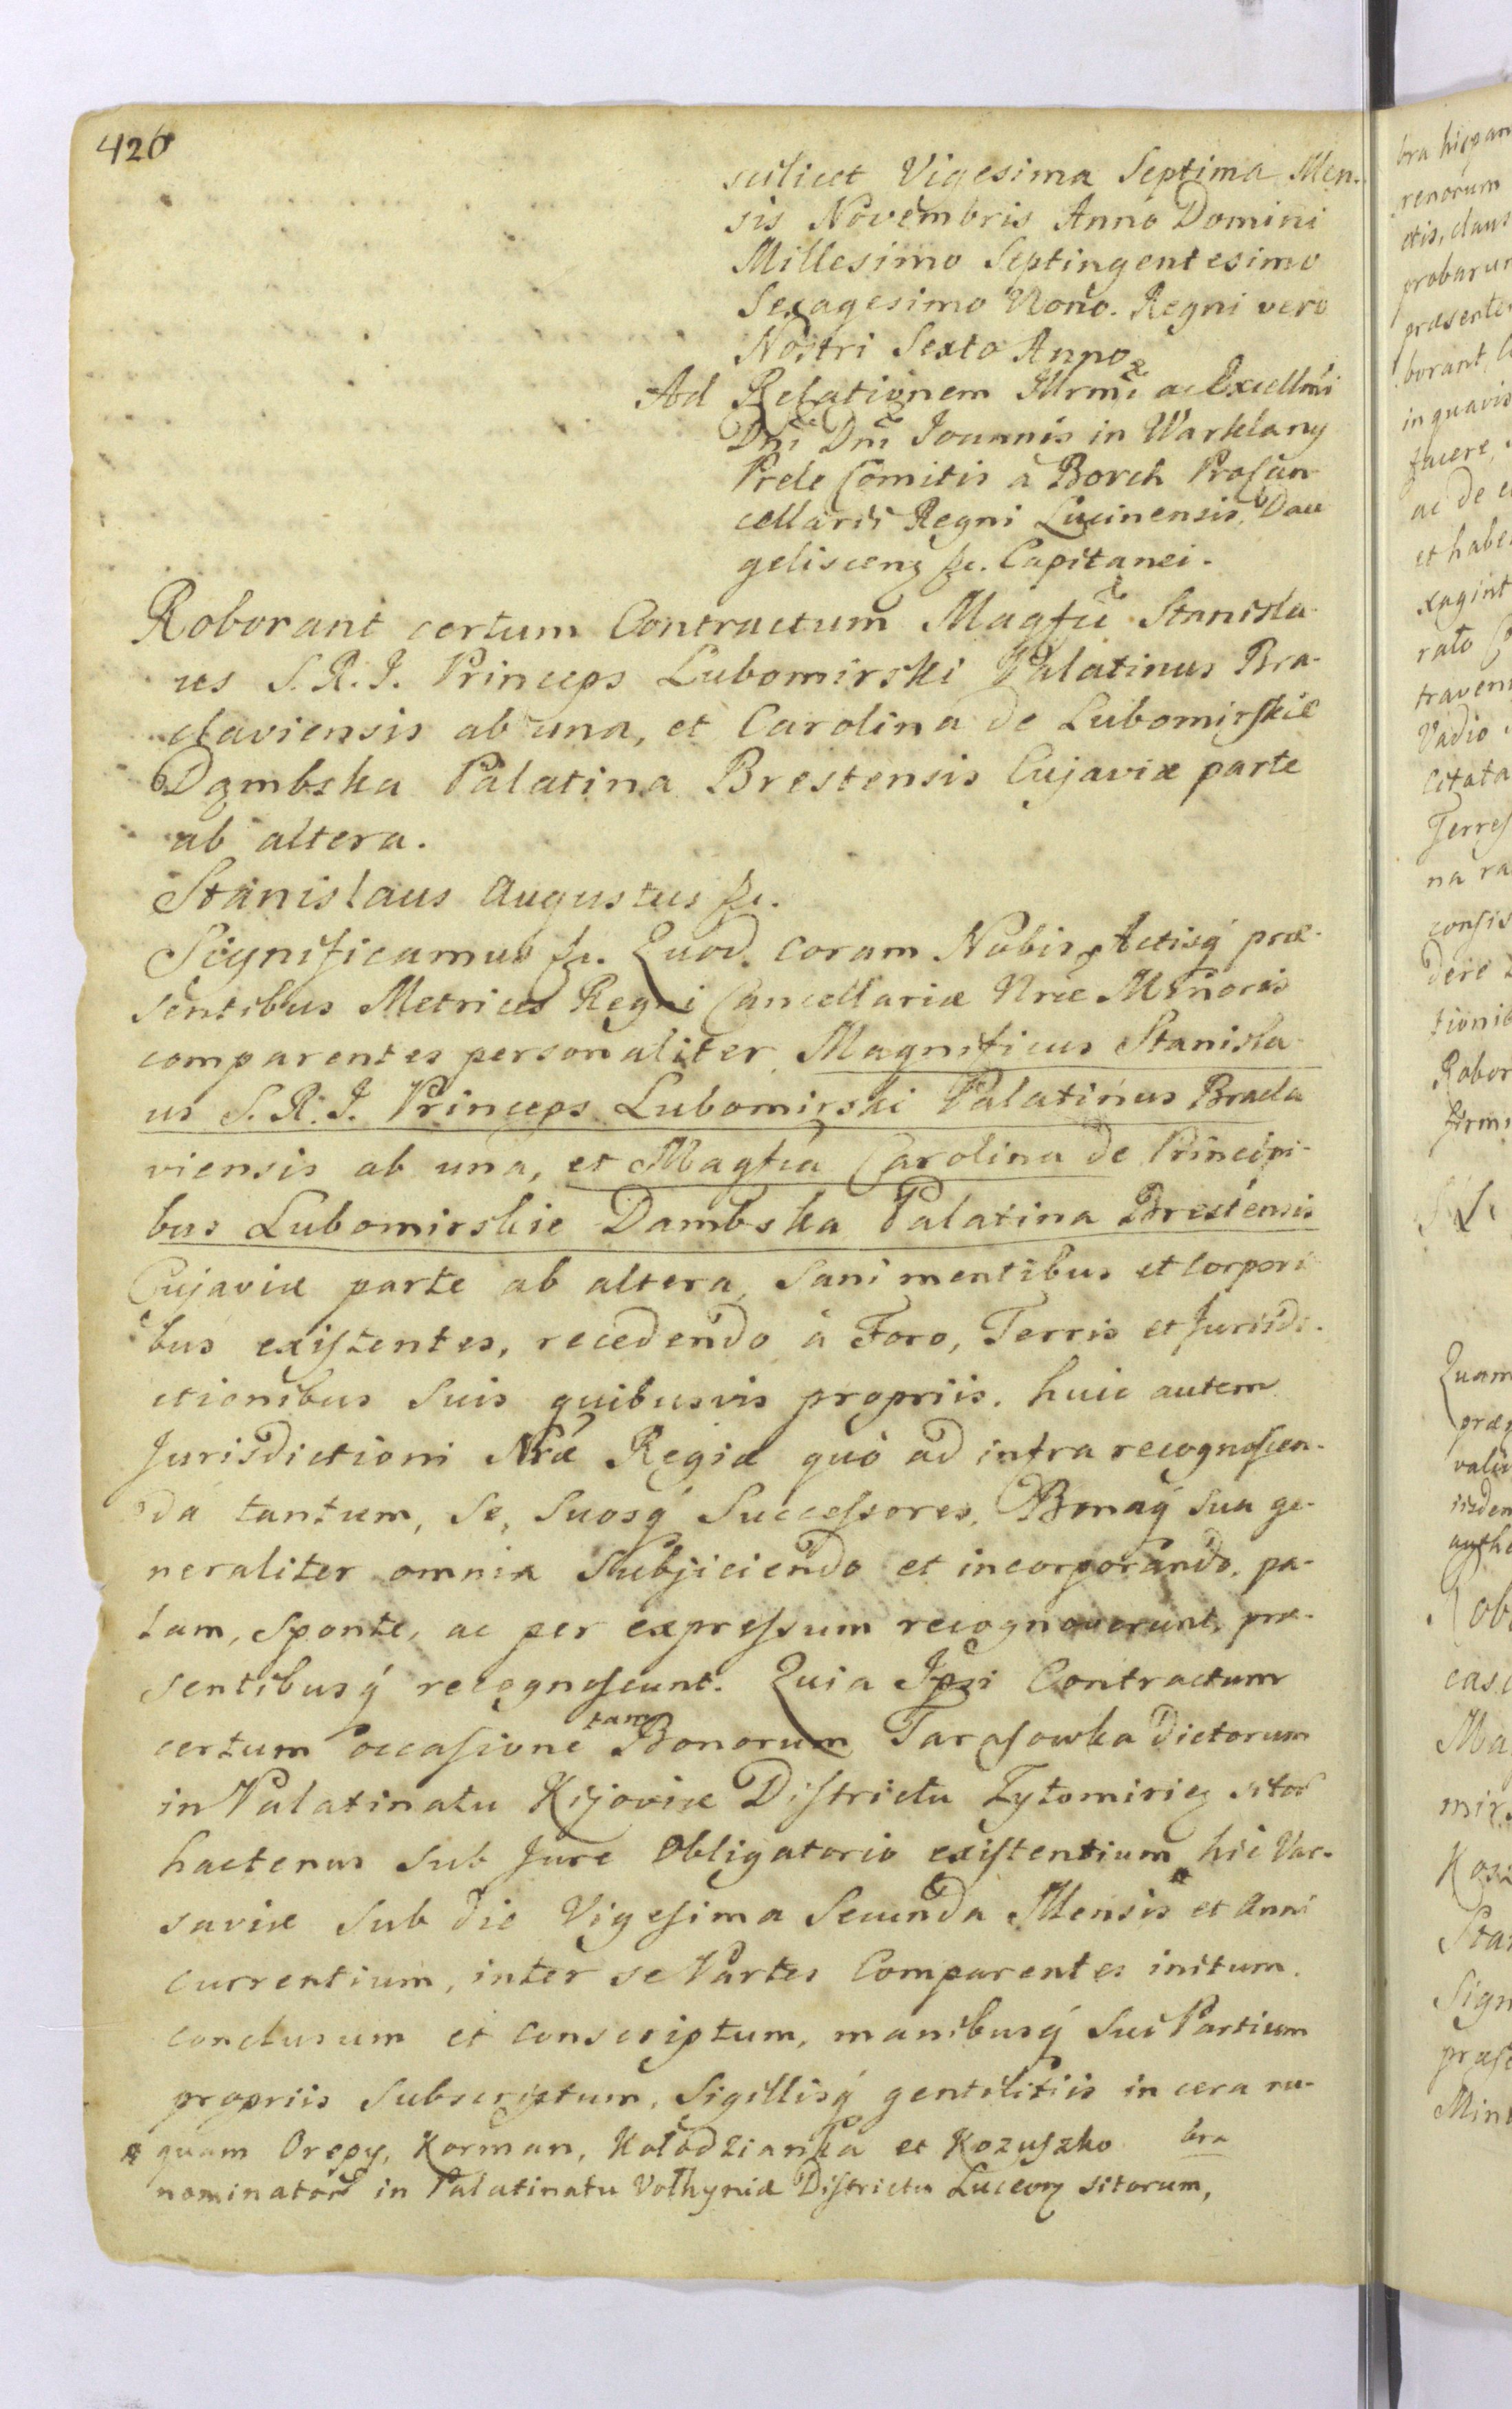 426
scilicet Vigesima Septima Men-
sis Novembris Anno Domini
Millesimo Septingentesimo
Sexagesimo Nono. Regni vero
Nostri Sexto Anno
Ad Relationem Illrmi ac Excellmi
Dni Dni Joannis in Warklany
Prele Comitis a Borch Procan
cellarii Regni Lucinensis, Dau
gelisceng &c. Capitanei.
Roborant certum Contractum Magfci Stanisla-
us S. R. I. Princeps Lubomirski Palatinus Bra-
claviensis ab una, et Carolina de Lubomirskie
Dąmbska Palatina Brestensis Cujaviæ parte
ab altera.
Stanislaus Augustus &c.
Significamus &c. Quod coram Nobis, Actisq́ præ-
sentibus Metrices Regni Cancellariæ Nræ Minoris
comparentes personaliter Magnificus Stanisla-
us S. R. I. Princeps Lubomirski Palatinus Bracla
viensis ab una, et Magfca Carolina de Principi-
bus Lubomirskie Dambska Palatina Brestensis
Cujaviæ parte ab altera, Sani mentibus et Corpori
bus existentes, recedendo à Foro, Terris et Jurisdi-
ctionibus Suis quibusvis propriis, huic autem
Jurisdictioni Nræ Regiæ quò ad infra recognoscen-
da tantum, Se, Suosq́ Successores, Bonaq́ Sua ge-
neraliter omnia Subjiciendo et incorporando, pa-
lam, Sponte, ac per expressum recognoverunt, præ-
sentibusq́ recognoscunt. Quia Ipsi Contractum
certum occasione tam Bonorum Tarasowka Dictorum
in Palatinatu Kijoviæ Districtu Zytomirien sitor
hactenus Sub Jure Obligatorio existentium * hic Var-
saviæ Sub die Vigesima Secunda Mensis et Anni
currentium, inter se Partes Comparentes initum,
conclusum et conscriptum, manibusq́ Sui Partium
propriis Subscriptum, Sigillisq́ gentilitiis in cera ru-
bra
* quam Orepy, Korman, Kołodzianka et Kozuszko
nominator in Palatinatu Volhyniæ Districtu Luceorien sitorum,
bra hispan
renorum
probarun
præsente
borant,
in quavis
facere,
ac de
et habe
xagint
rato
traven
Vadio
Citata
Terres
na ra
consis
dere
tionib
Robor
firmi
Quam
præ
vali
iisdem
authe
Rob
eas
Ma
mir
Kosz
Stan
Sign
præse
Mino